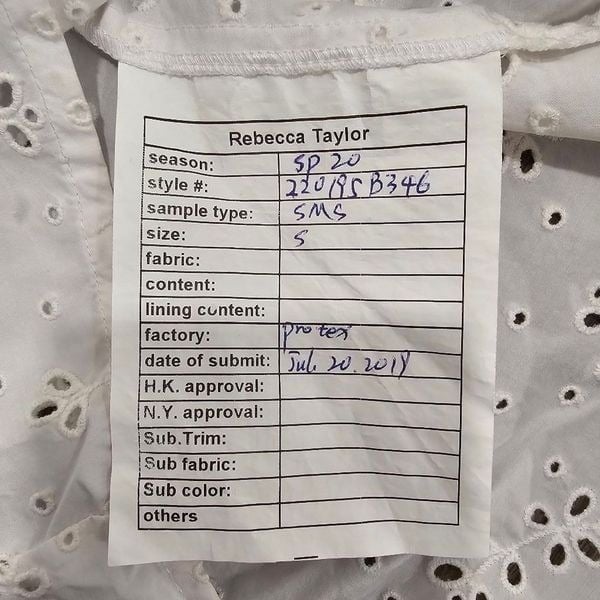 Rebecca Taylor
season: SP 20
style #: 220195B346
sample type: SMS
size: S
fabric:
content:
lining content:
factory: protex
date of submit: Jul. 20. 2019
H.K. approval:
N.Y. approval:
Sub.Trim:
Sub fabric:
Sub color:
others